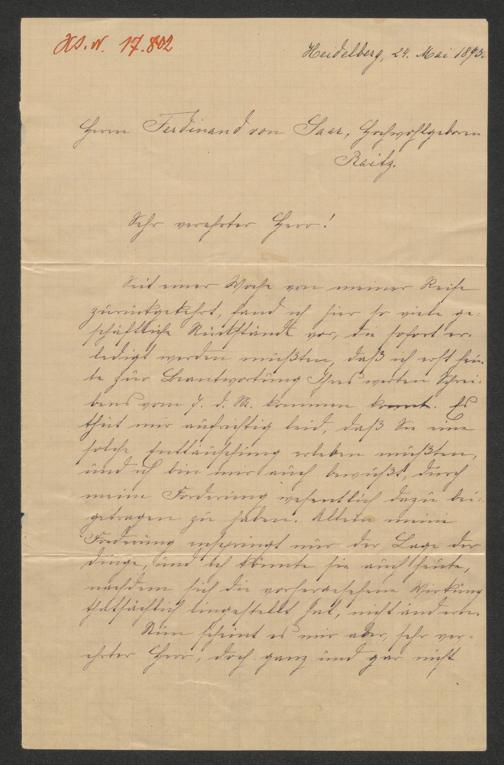 Hs. N. 17.802
Heidelberg, 24. Mai 1893.
Herrn Ferdinand von Saar, Hochwohlgeboren
Raitz.
Sehr verehrter Herr!
Seit einer Woche von meiner Reise
zurückgekehrt, fand ich hier so viele ge-
schäftliche Rückstände vor, die sofort er-
ledigt werden mußten, daß ich erst heu-
te zur Beantwortung Ihres werten Schrei-
bens vom 7. d. M. kommen konnte. Es
thut mir aufrichtig leid, daß Sie eine
solche Enttäuschung erleben mußten,
und ich bin mir auch bewußt, durch
meine Forderung wesentlich dazu bei-
getragen zu haben. Allein meine
Forderung entspringt nur der Lage der
Dinge, und ich könnte sie auch heute,
nachdem sich die vorhergesehene Wirkung
thatsächlich eingestellt hat, nicht ändern.
Nun scheint es mir aber, sehr ver-
ehrter Herr, doch ganz und gar nicht